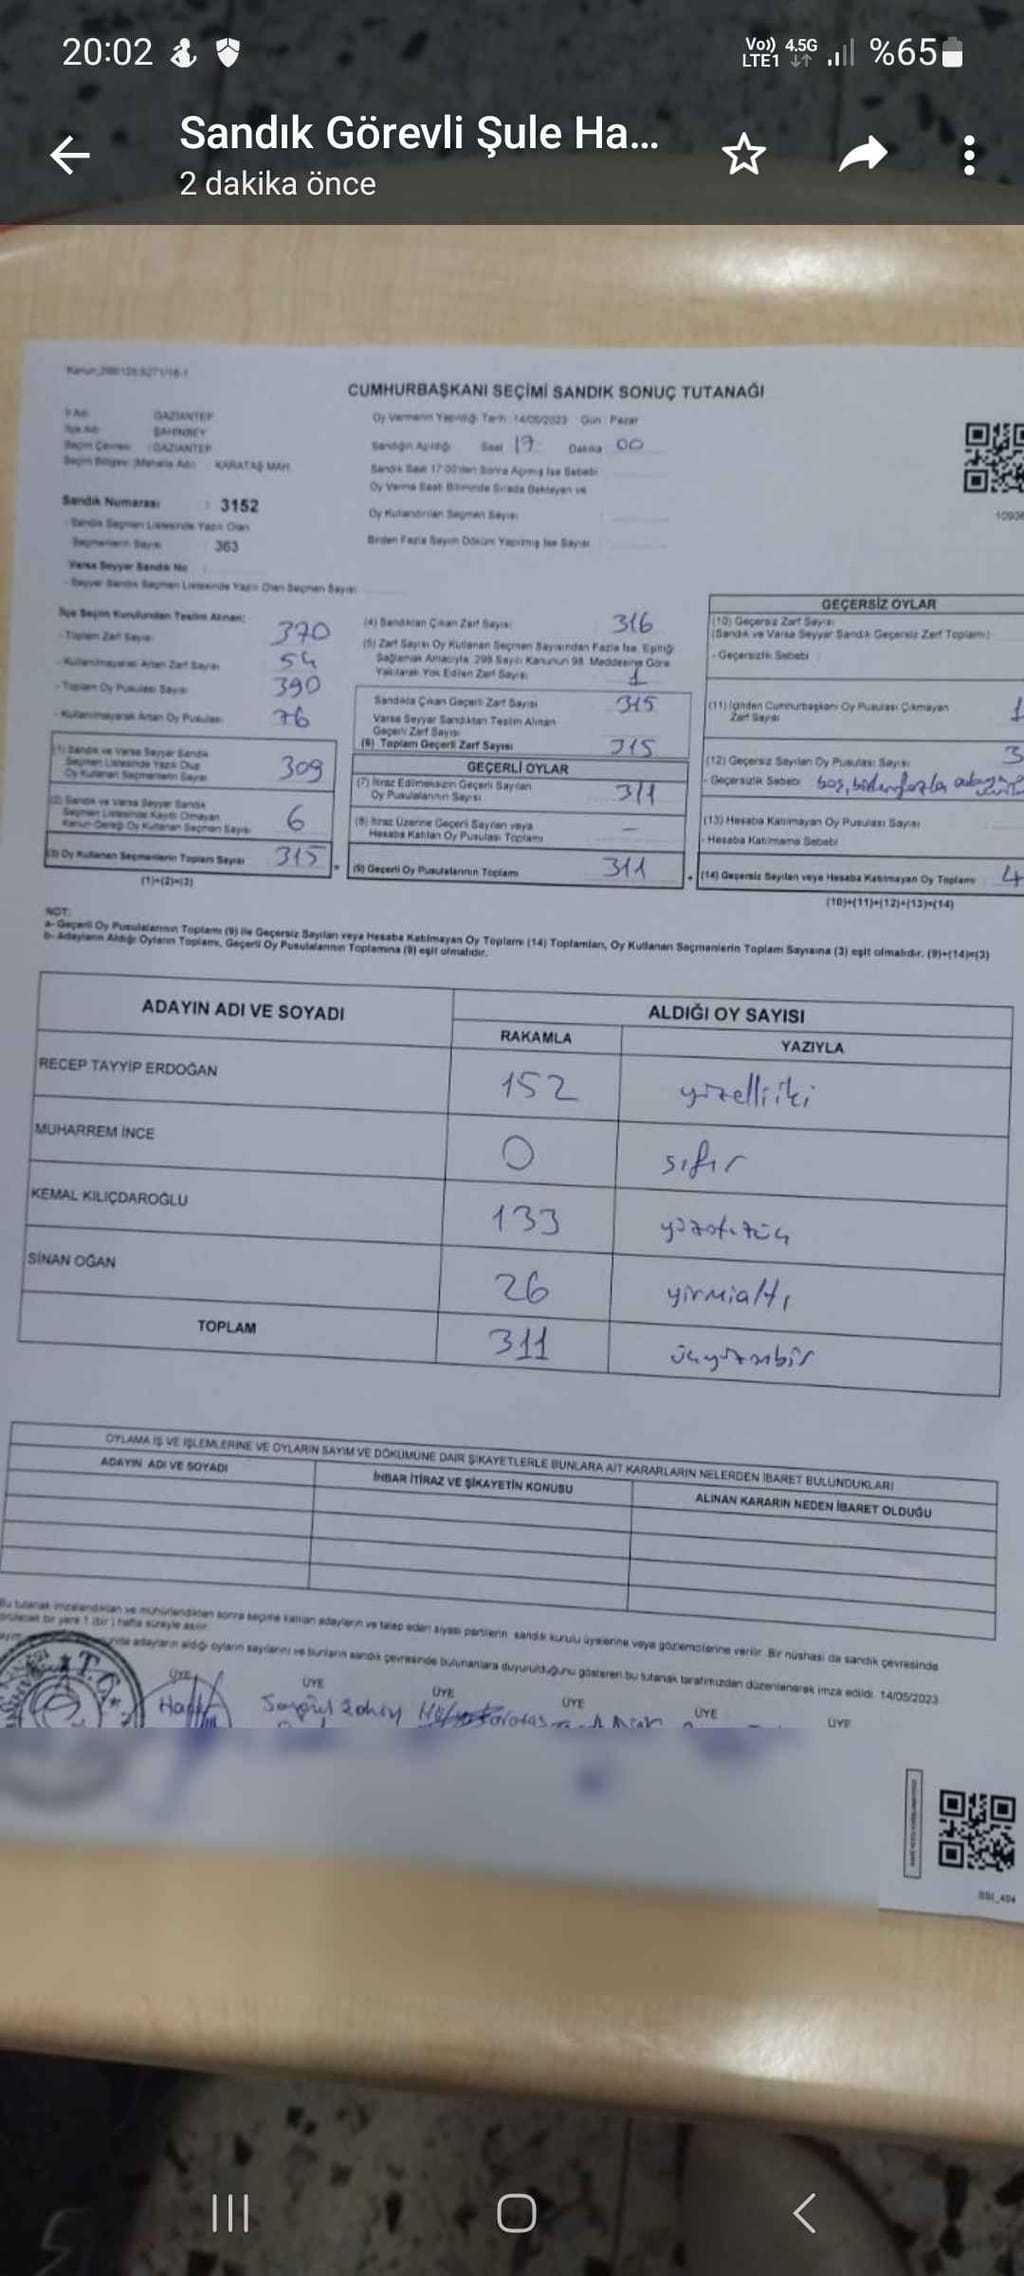 20:02
Vo)) 4.5G
LTE1
%65
Sandık Görevli Şule Ha...
2 dakika önce
CUMHURBAŞKANI SEÇİMİ SANDIK SONUÇ TUTANAĞI
İl Adı GAZİANTEP
İlçe Adı ŞAHİNBEY
Seçim Çevresi GAZİANTEP
Seçim Bölgesi (Mahalle Adı) KARATAŞ MAH.
Sandık Numarası : 3152
- Sandık Seçmen Listesinde Yazılı Olan
Seçmenlerin Sayısı : 363
Varsa Seyyar Sandık No
- Seyyar Sandık Seçmen Listesinde Yazılı Olan Seçmen Sayısı
Oy Vermenin Yapıldığı Tarih: 14/05/2023 Gün: Pazar
Sandığın Açıldığı Saat 17 Dakika 00
Sandık Saat 17:00'den Sonra Açılmış İse Sebebi
Oy Verme Saati Bitiminde Sırada Bekleyen ve
Oy Kullandırılan Seçmen Sayısı
Birden Fazla Sayım Döküm Yapılmış İse Sayısı
İlçe Seçim Kurulundan Teslim Alınan:
- Toplam Zarf Sayısı 370
- Kullanılmayarak Artan Zarf Sayısı 54
- Toplam Oy Pusulası Sayısı 390
- Kullanılmayarak Artan Oy Pusulası 76
(1) Sandık ve Varsa Seyyar Sandık
Seçmen Listesinde Yazılı Olup
Oy Kullanan Seçmenlerin Sayısı 309
(2) Sandık ve Varsa Seyyar Sandık
Seçmen Listesinde Kayıtlı Olmayan
Kanun Gereği Oy Kullanan Seçmen Sayısı 6
(3) Oy Kullanan Seçmenlerin Toplam Sayısı 315
(1)+(2)=(3)
(4) Sandıktan Çıkan Zarf Sayısı 316
(5) Zarf Sayısı Oy Kullanan Seçmen Sayısından Fazla İse, Eşitliği
Sağlamak Amacıyla, 298 Sayılı Kanunun 98. Maddesine Göre
Yakılarak Yok Edilen Zarf Sayısı 1
Sandıkta Çıkan Geçerli Zarf Sayısı 315
Varsa Seyyar Sandıktan Teslim Alınan
Geçerli Zarf Sayısı
(6) Toplam Geçerli Zarf Sayısı 315
GEÇERLİ OYLAR
(7) İtiraz Edilmeksizin Geçerli Sayılan
Oy Pusulalarının Sayısı 311
(8) İtiraz Üzerine Geçerli Sayılan veya
Hesaba Katılan Oy Pusulası Toplamı –
(9) Geçerli Oy Pusulalarının Toplamı 311
GEÇERSİZ OYLAR
(10) Geçersiz Zarf Sayısı
(Sandık ve Varsa Seyyar Sandık Geçersiz Zarf Toplamı)
- Geçersizlik Sebebi
(11) İçinden Cumhurbaşkanı Oy Pusulası Çıkmayan
Zarf Sayısı 1
(12) Geçersiz Sayılan Oy Pusulası Sayısı 3
- Geçersizlik Sebebi boş, birden fazla
(13) Hesaba Katılmayan Oy Pusulası Sayısı
- Hesaba Katılmama Sebebi
(14) Geçersiz Sayılan veya Hesaba Katılmayan Oy Toplamı 4
(10)+(11)+(12)+(13)=(14)
NOT:
a- Geçerli Oy Pusulalarının Toplamı (9) ile Geçersiz Sayılan veya Hesaba Katılmayan Oy Toplamı (14) Toplamları, Oy Kullanan Seçmenlerin Toplam Sayısına (3) eşit olmalıdır. (9)+(14)=(3)
b- Adayların Aldığı Oyların Toplamı, Geçerli Oy Pusulalarının Toplamına (9) eşit olmalıdır.
ADAYIN ADI VE SOYADI ALDIĞI OY SAYISI
RAKAMLA YAZIYLA
RECEP TAYYİP ERDOĞAN 152 yüzelliiki
MUHARREM İNCE 0 sıfır
KEMAL KILIÇDAROĞLU 133 yüzotuzüç
SİNAN OĞAN 26 yirmialtı
TOPLAM 311 üçyüzonbir
OYLAMA İŞ VE İŞLEMLERİNE VE OYLARIN SAYIM VE DÖKÜMÜNE DAİR ŞİKAYETLERLE BUNLARA AİT KARARLARIN NELERDEN İBARET BULUNDUKLARI
ADAYIN ADI VE SOYADI İHBAR İTİRAZ VE ŞİKAYETİN KONUSU ALINAN KARARIN NEDEN İBARET OLDUĞU
Bu tutanak imzalandıktan ve mühürlendikten sonra seçime katılan adayların ve talep eden siyasi partilerin sandık kurulu üyelerine veya gözlemcilerine verilir. Bir nüshası da sandık çevresinde
bir yere 1 (bir) hafta süreyle asılır.
adayların aldığı oyların sayılarını ve bunların sandık çevresinde bulunanlara duyurulduğunu gösteren bu tutanak tarafımızdan düzenlenerek imza edildi. 14/05/2023
T.C.
ÜYE ÜYE ÜYE ÜYE ÜYE ÜYE